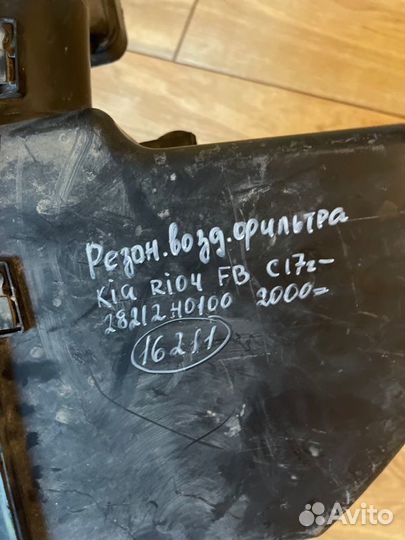 Резон.возд.фильтра
Kia RiO4 FB C17г-
28212H0100 2000=
16211
Avito